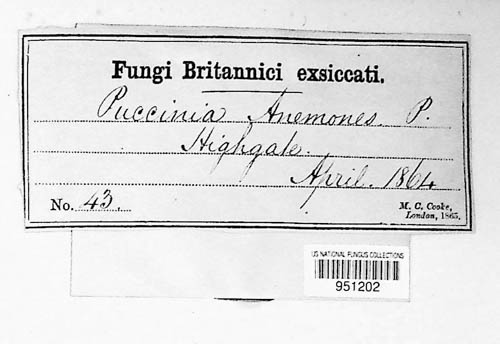 Fungi Britannici exsiccati.
Puccinia Anemones P.
Highgate.
April. 1864
No. 43.
M. C. Cooke,
London, 1865.
US NATIONAL FUNGUS COLLECTIONS
951202